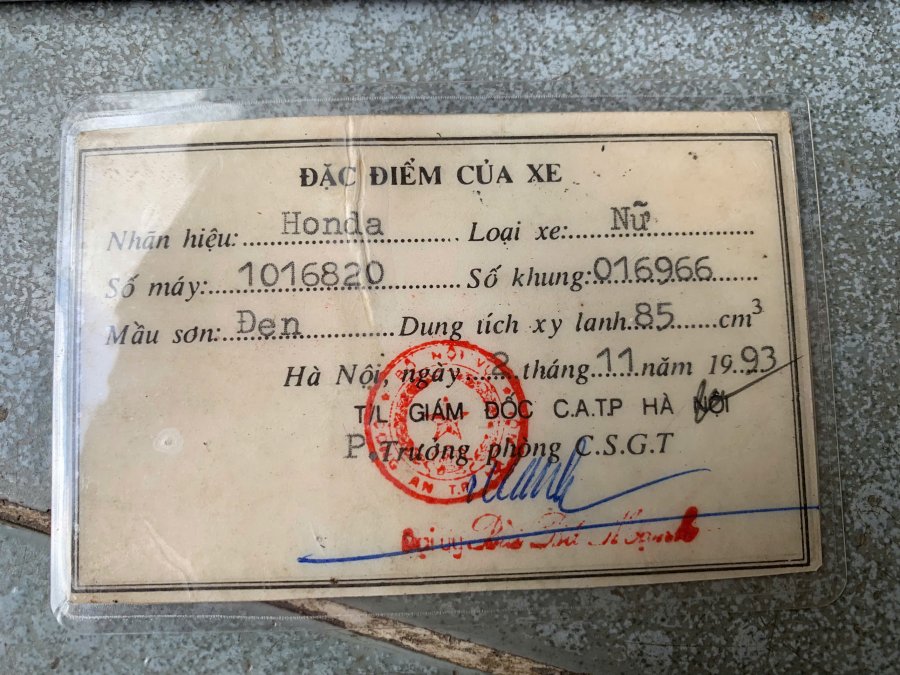 ĐẶC ĐIỂM CỦA XE
Nhãn hiệu: Honda Loại xe: Nữ
Số máy: 1016820 Số khung: 016966
Mầu sơn: Đen Dung tích xy lanh 85 cm³
Hà Nội, ngày 2 tháng 11 năm 1993
T/L GIÁM ĐỐC C.A.T.P HÀ NỘI
P. Trưởng phòng C.S.G.T
Đại uý